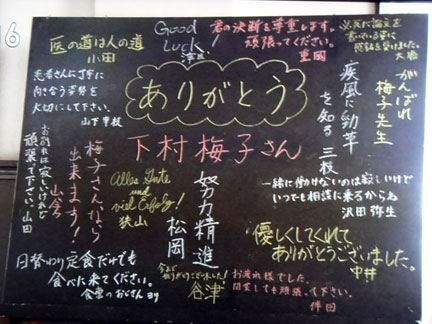 16
医の道は人の道
小田
Good
Luck!
君の決断を尊重します。
頑張ってください。
重岡
大指
患者さんに丁寧に
向き合う姿勢を
大切にして下さい。
山下事校
ありがとう
下村梅子さん
がんばれ
梅子先生
疾風に勁草
を知る 三枝
一緒に働かないのは寂しいけど
いつでも相談に来るからね
沢田 弥生
お別れは寂しいけれど
頑張って下さい。山田
梅子さんなら
出来ます!
山倉
Alles Gute
und
viel Erfolg!
狭山
努力精進
松岡
優しくしてくれて
ありがとうございました。
中井
日替わり定食だけでも
食べに来てください。
食堂のおじさんより
今まで
ありがとうございました!
谷津
お疲れ様でした。
開業しても頑張って下さい。
伴田